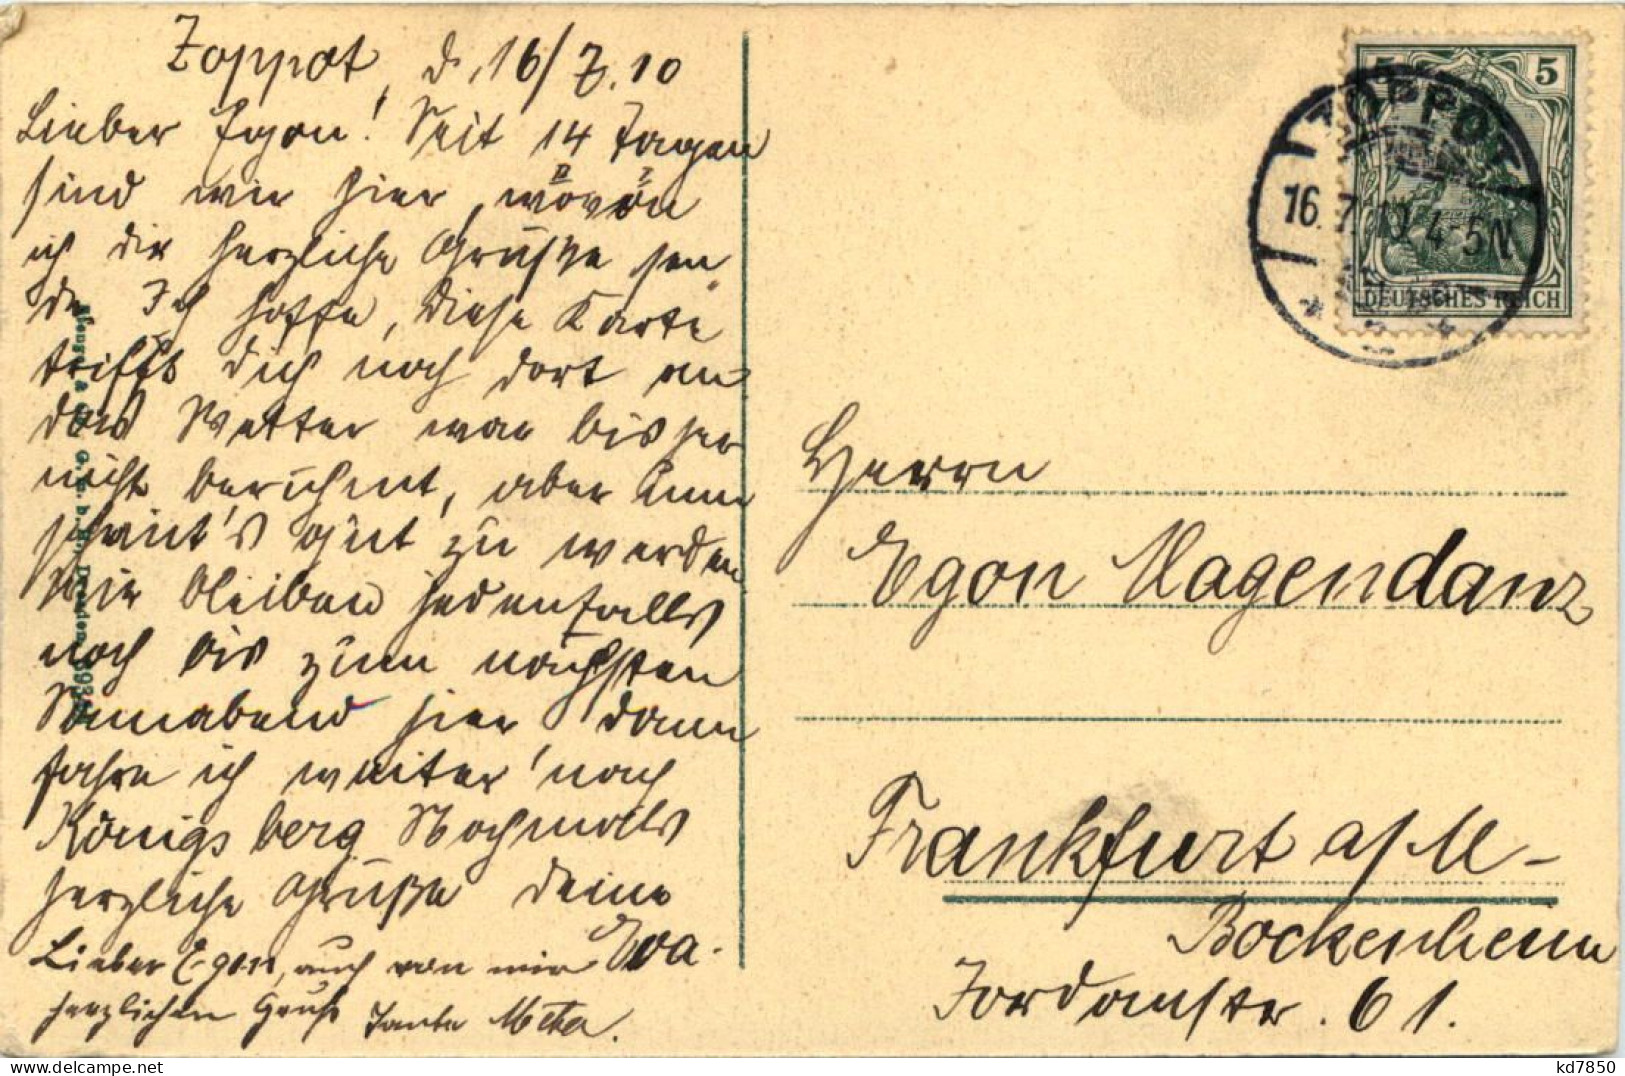 Zoppot, d. 16/7.10
Lieber Egon! Seit 14 Tagen
sind wir hier, wovon
ich dir herzliche Grüße sen
de. Ich hoffe, diese Karte
trifft dich noch dort an
das Wetter war bisher
nicht berühmt, aber nun
scheint's gut zu werden
Wir bleiben jedenfalls
noch bis zum nächsten
Sonnabend hier dann
fahre ich weiter nach
Königsberg Nochmals
herzliche Grüße deine
Eva.
Lieber Egon, auch von mir
herzlichen Gruß Tante Meta.
5 5
DEUTSCHES REICH
ZOPPOT
16.7.10 4-5N
Herrn
Egon Magendanz
Frankfurt a/M-
Bockenheim
Jordanstr. 61.
kd7850